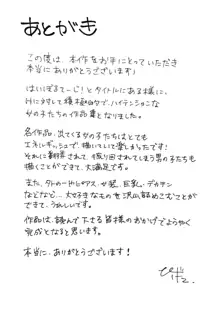 あとがき
この度は、本作をお手にとっていただき
本当にありがとうございます!
はいぱぁまーじ!とタイトルにある様に、
Hに対して積極的で、ハイテンションな
女の子たちの作品集となりました。
各作品、出てくる女の子はとても
エネルギッシュで、描いていて楽しかったです!
それに翻弄されて、振り回されてしまう男の子たちも
描くことができて、大満足です。
また、タトゥーやピアス、女装、巨乳、デカチン
などなど…、大好きなものを沢山詰めこむことが
できて、うれしいです。
作品は、読んで下さる皆様のおかげでようやく
完成となると思います。
本当に、ありがとうございます!